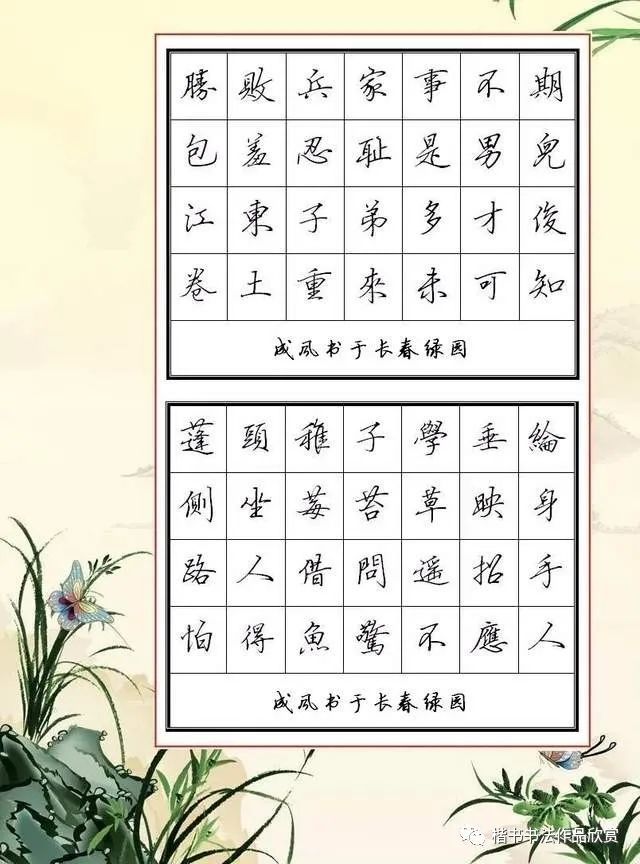 勝敗兵家事不期
包羞忍耻是男兒
江東子弟多才俊
卷土重來未可知
成凤书于长春绿园
蓬頭稚子學垂綸
側坐莓苔草映身
路人借問遥招手
怕得魚驚不應人
成凤书于长春绿园
楷书书法作品欣赏